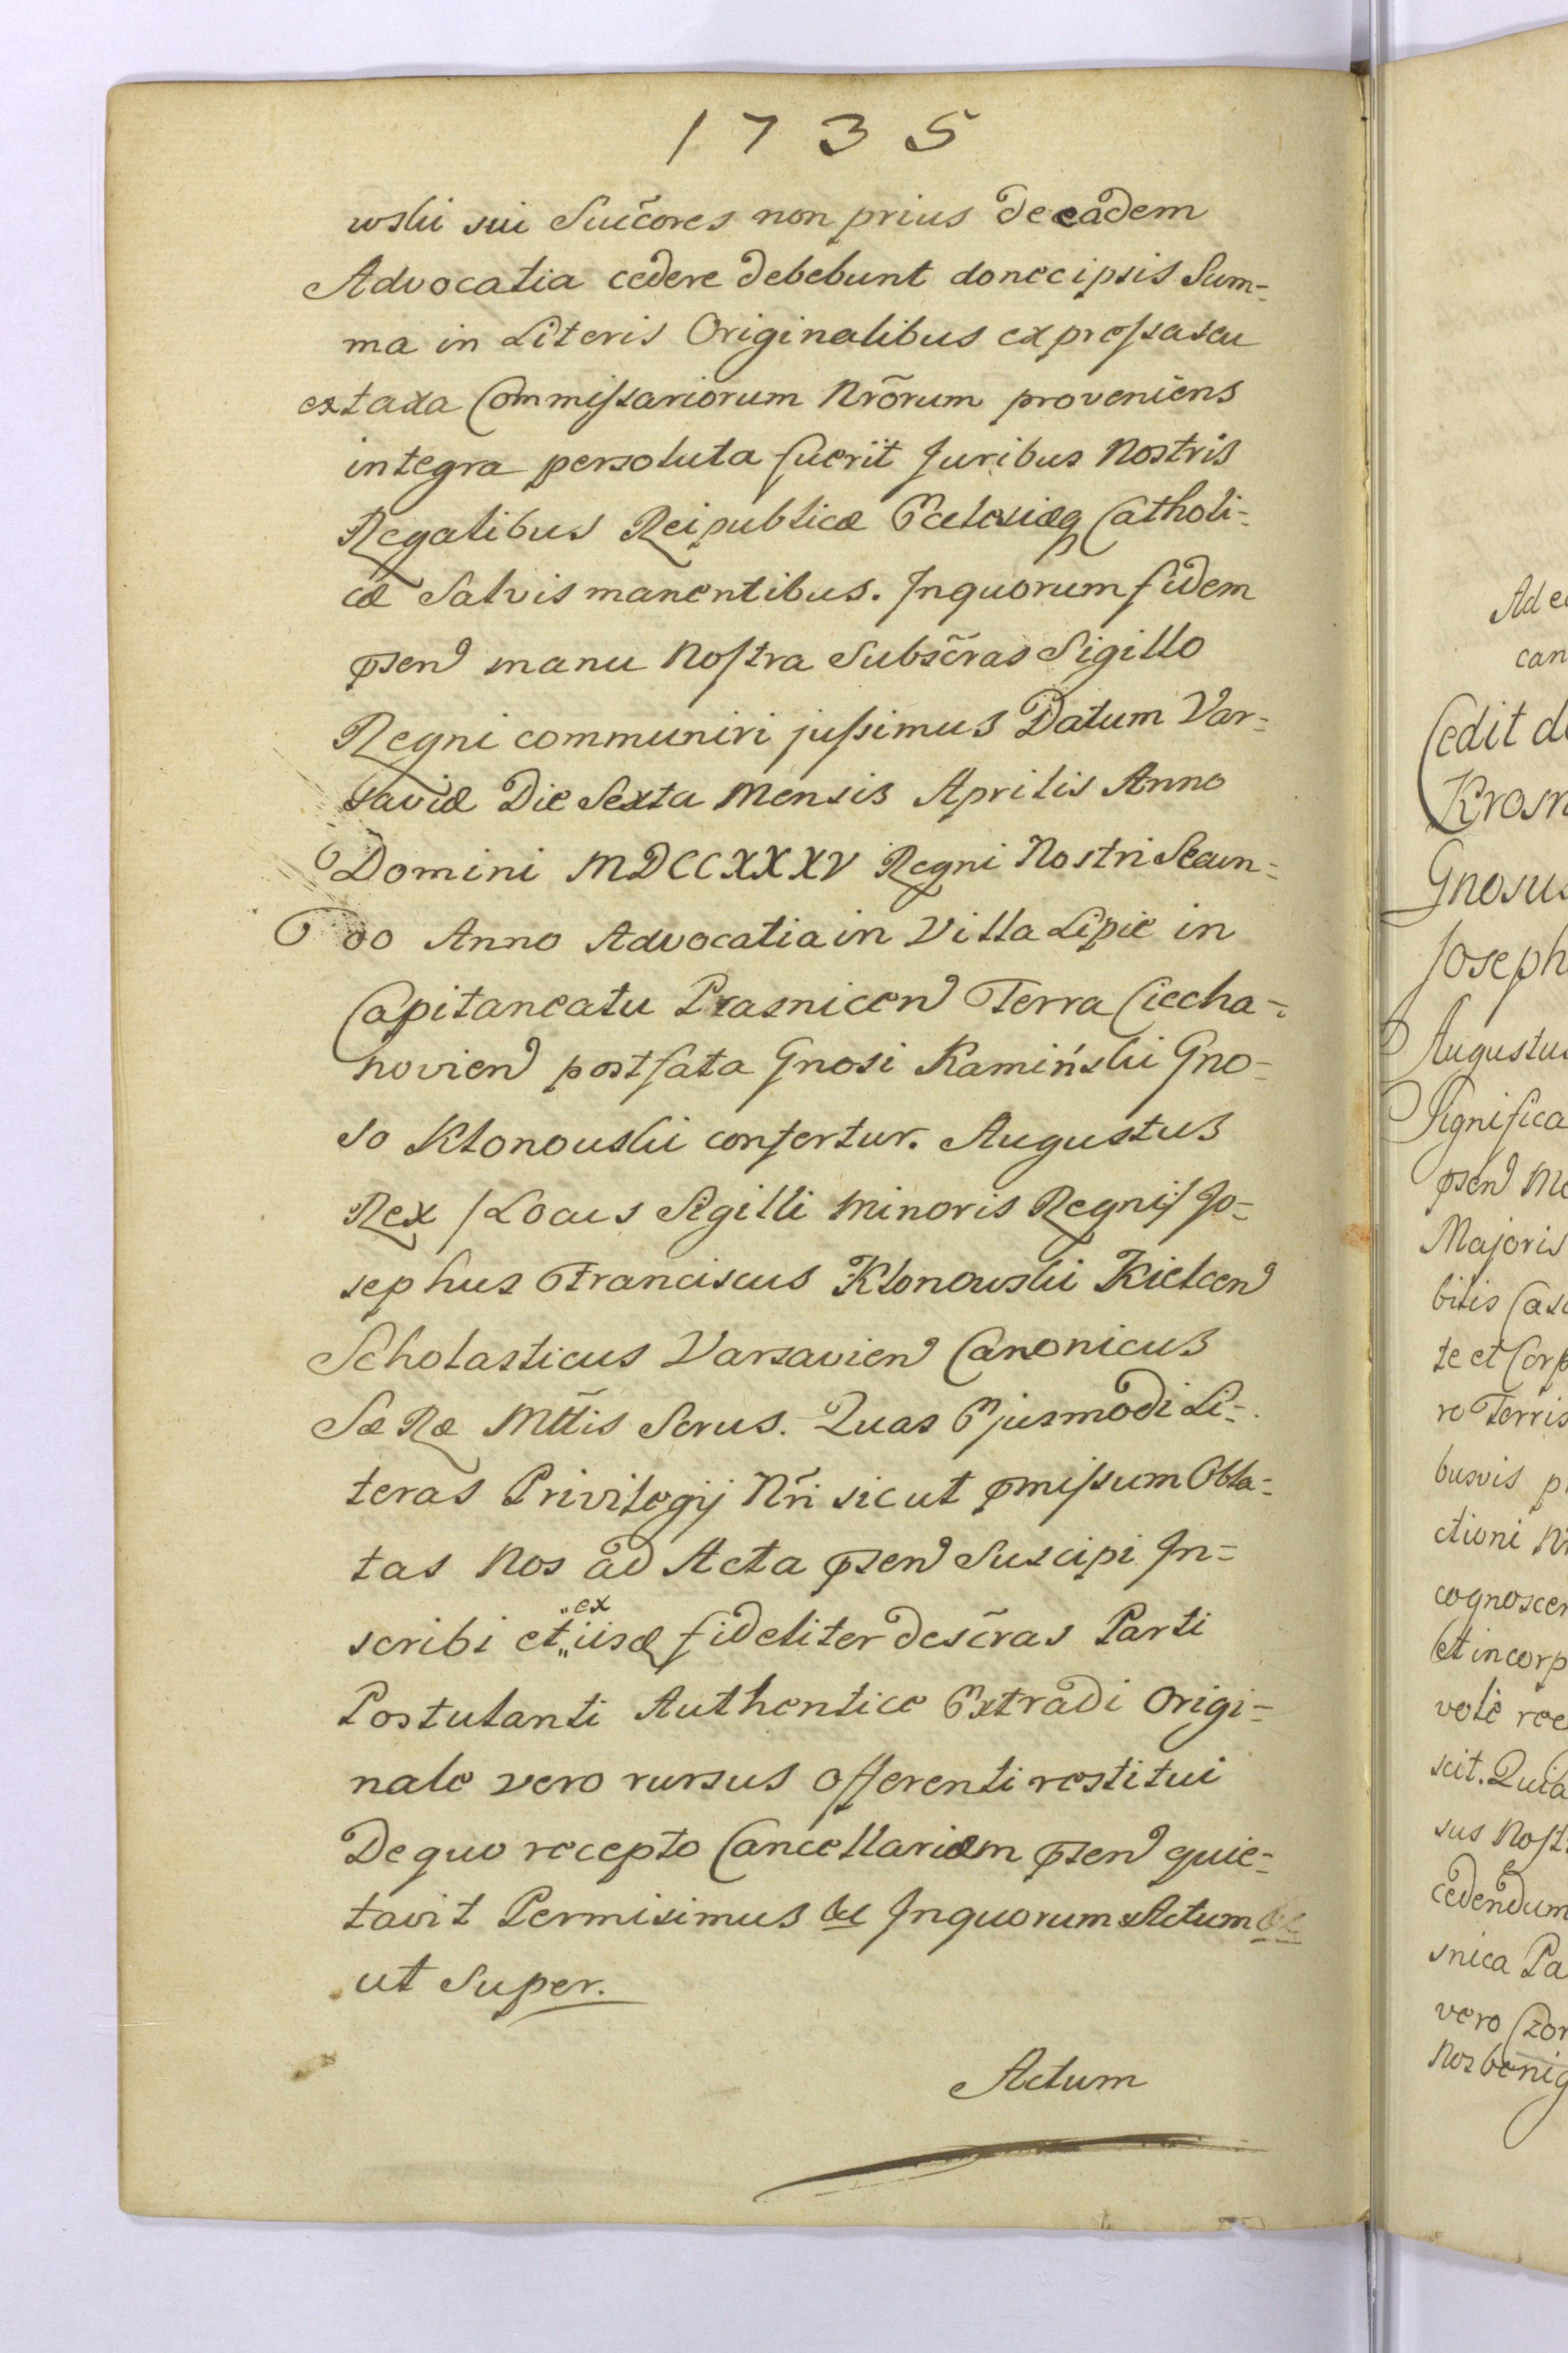 1735
wski sui Succ̃ores non prius de eadem
Advocatia cedere debebunt donec ipsis Sum=
ma in Literis Originalibus expressa seu
ex taxa Commissariorum Nrõrum proveniens
integra persoluta fuerit Juribus Nostris
Regalibus Reipublicæ Ecclesiæq Catholi=
cæ Salvis manentibus. In quorum fidem
p̃sen manu Nostra Subsc̃ras Sigillo
Regni communiri jussimus Datum Var=
saviæ Die Sexta Mensis Aprilis Anno
Domini MDCCXXXV Regni Nostri Secun=
do Anno Advocatia in Villa Lipie in
Capitaneatu Prasnicen Terra Ciecha=
novien post fata Gnosi Kamiński Gno=
so Klonowski confertur. Augustus
Rex /Locus Sigilli Minoris Regni/ Jo=
sephus Franciscus Klonowski Kielcen
Scholasticus Varsavien Canonicus
Sæ Ræ Mttis Scrus. Quas Ejusmodi Li=
teras Privilegij Nr̃i sicut p̃missum Obla=
tas Nos ad Acta p̃sen Suscipi In=
scribi et "ex" iisd fideliter desc̃ras Parti
Postulanti Authentice Extradi Origi=
nale vero rursus offerenti restitui
De quo recepto Cancellariam p̃sen quie=
tavit Permisimus &c In quorum Actum &c
ut Super.
Actum
Ad e
can
Cedit d
Krosn
Gnosus
Joseph
Augustus
Significa
p̃sen M
Majoris
bilis Cas
te et Corp
ro Terris
busvis p
ctioni N
cognoscen
et incorp
vole rec
scit. Quia
sus Nost
cedendum
snica Pa
vero Czor
Nos benig